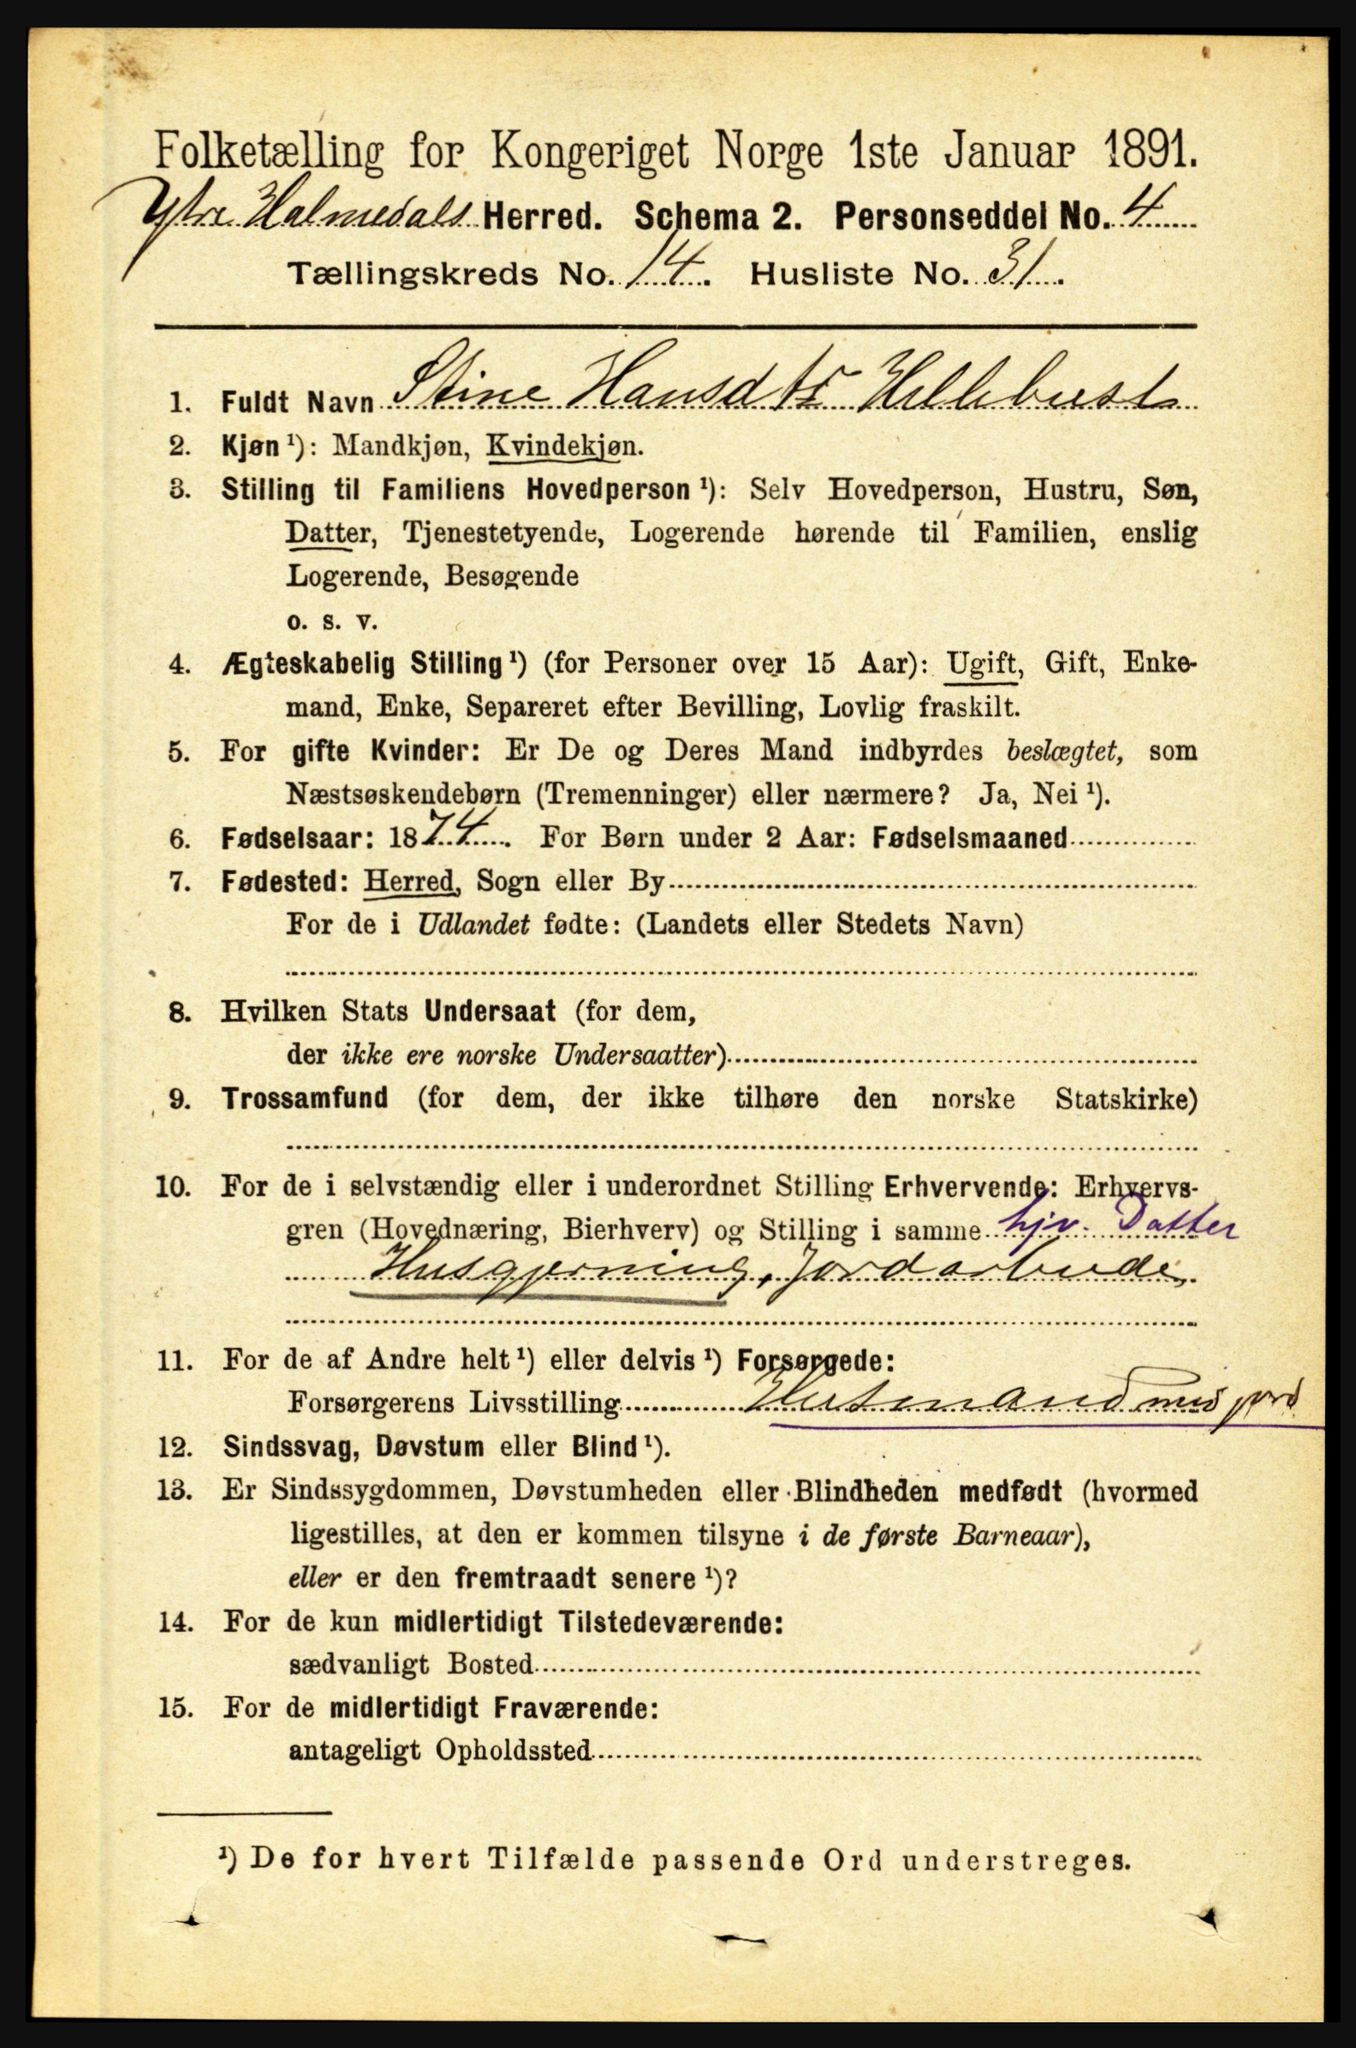 Folketælling for Kongeriget Norge 1ste Januar 1891.
Ytre Holmedals Herred. Schema 2. Personseddel No. 4
Tællingskreds No. 14. Husliste No. 31.
1. Fuldt Navn Stine Hansdtr Hellebust
2. Kjøn ¹): Mandkjøn, Kvindekjøn.
3. Stilling til Familiens Hovedperson ¹): Selv Hovedperson, Hustru, Søn,
Datter, Tjenestetyende, Logerende hørende til Familien, enslig
Logerende, Besøgende
o. s. v.
4. Ægteskabelig Stilling ¹) (for Personer over 15 Aar): Ugift, Gift, Enke-
mand, Enke, Separeret efter Bevilling, Lovlig fraskilt.
5. For gifte Kvinder: Er De og Deres Mand indbyrdes beslægtet, som
Næstsøskendebørn (Tremenninger) eller nærmere? Ja, Nei ¹).
6. Fødselsaar: 1874. For Børn under 2 Aar: Fødselsmaaned
7. Fødested: Herred, Sogn eller By
For de i Udlandet fødte: (Landets eller Stedets Navn)
8. Hvilken Stats Undersaat (for dem,
der ikke ere norske Undersaatter)
9. Trossamfund (for dem, der ikke tilhøre den norske Statskirke)
10. For de i selvstændig eller i underordnet Stilling Erhvervende: Erhvervs-
gren (Hovednæring, Bierhverv) og Stilling i samme hjv. Datter
Husgjerning, Jordarbeide
11. For de af Andre helt ¹) eller delvis ¹) Forsørgede:
Forsørgerens Livsstilling Husmand med jord
12. Sindssvag, Døvstum eller Blind ¹).
13. Er Sindssygdommen, Døvstumheden eller Blindheden medfødt (hvormed
ligestilles, at den er kommen tilsyne i de første Barneaar),
eller er den fremtraadt senere ¹)?
14. For de kun midlertidigt Tilstedeværende:
sædvanligt Bosted
15. For de midlertidigt Fraværende:
antageligt Opholdssted
¹) De for hvert Tilfælde passende Ord understreges.